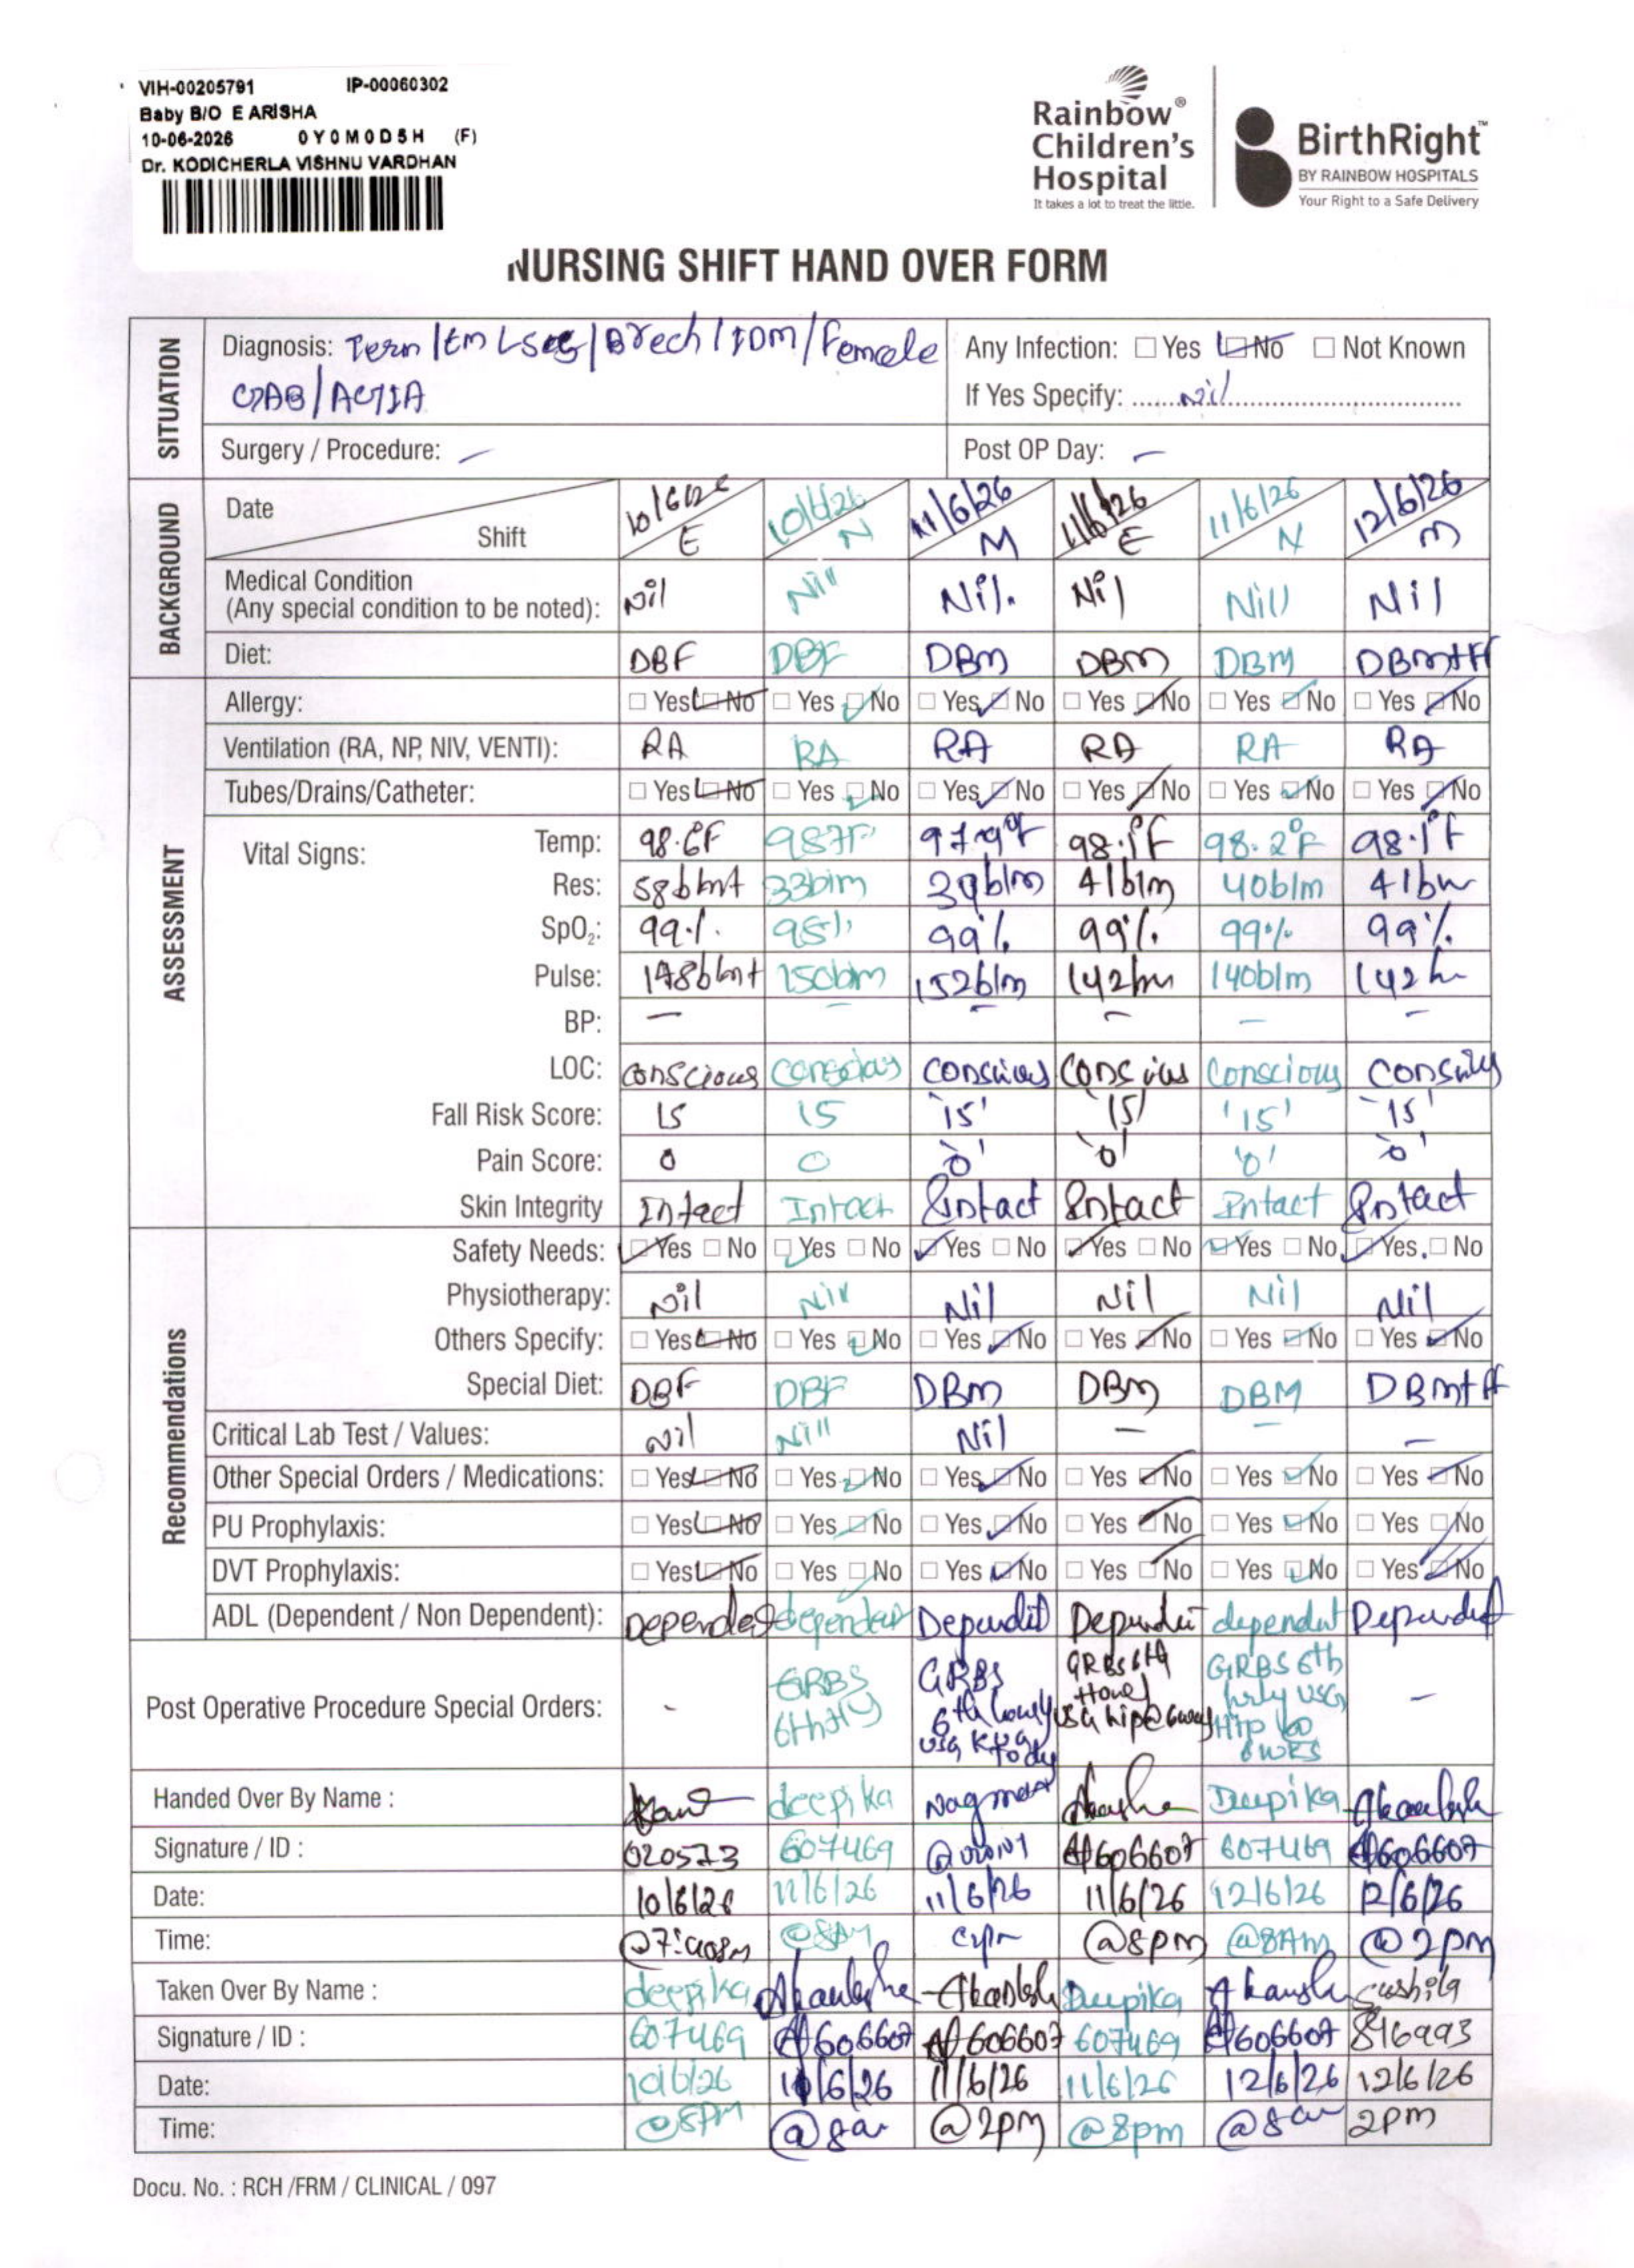 VIH-00205791 IP-00060302
Baby B/O E ARISHA
10-06-2026 0Y0M0D5H (F)
Dr. KODICHERLA VISHNU VARDHAN
Rainbow®
Children's
Hospital
It takes a lot to treat the little.
BirthRight™
BY RAINBOW HOSPITALS
Your Right to a Safe Delivery
NURSING SHIFT HAND OVER FORM
SITUATION
Diagnosis: Term / Em LSCS / Breech / IDM / Female
CIAB / AGA
Any Infection: Yes No Not Known
If Yes Specify: Nil
Surgery / Procedure: –
Post OP Day: –
BACKGROUND
Date Shift 10/6/26 E 10/6/26 N 11/6/26 M 11/6/26 E 11/6/26 N 12/6/26 M
Medical Condition
(Any special condition to be noted): Nil Nill Nil. Nil Nill Nil
Diet: DBF DBF DBM DBM DBM DBM+FF
ASSESSMENT
Allergy: Yes No Yes No Yes No Yes No Yes No Yes No
Ventilation (RA, NP, NIV, VENTI): RA RA RA RA RA RA
Tubes/Drains/Catheter: Yes No Yes No Yes No Yes No Yes No Yes No
Vital Signs:
Temp: 98.6F 98.7F 97.9°F 98.1°F 98.2°F 98.1°F
Res: 58b/mt 33b/m 39b/m 41b/m 40b/m 41b
SpO₂: 99% 98% 99% 99% 99% 99%
Pulse: 148b/mt 150b/m 152b/m 142b/m 140b/m 142
BP: – – – – – –
LOC: conscious conscious conscious conscious Conscious conscious
Fall Risk Score: 15 15 '15' '15' '15' '15'
Pain Score: 0 0 '0' '0' '0' '0'
Skin Integrity Intact Intact Intact Intact Intact Intact
Recommendations
Safety Needs: Yes No Yes No Yes No Yes No Yes No Yes No
Physiotherapy: Nil Nil Nil Nil Nil Nil
Others Specify: Yes No Yes No Yes No Yes No Yes No Yes No
Special Diet: DBF DBF DBM DBM DBM DBM+FF
Critical Lab Test / Values: Nil Nill Nil – – –
Other Special Orders / Medications: Yes No Yes No Yes No Yes No Yes No Yes No
PU Prophylaxis: Yes No Yes No Yes No Yes No Yes No Yes No
DVT Prophylaxis: Yes No Yes No Yes No Yes No Yes No Yes No
ADL (Dependent / Non Dependent): Dependent dependent Dependent Dependent dependent Dependent
Post Operative Procedure Special Orders: - GRBS 6th GRBS 6th hourly USG today GRBS 6th USG hip @ 6 GRBS 6th hrly USG Hip @ 6 WKS –
Handed Over By Name : deepika Deepika
Signature / ID : 020573 607469 606607 607469 606607
Date: 10/6/26 11/6/26 11/6/26 11/6/26 12/6/26 12/6/26
Time: @8AM @8pm @8Am @2pm
Taken Over By Name : deepika Deepika sushila
Signature / ID : 607469 606607 606607 607469 606607 816993
Date: 10/6/26 11/6/26 11/6/26 11/6/26 12/6/26 12/6/26
Time: @8PM @8am @2pm @8pm @8am 2pm
Docu. No. : RCH /FRM / CLINICAL / 097